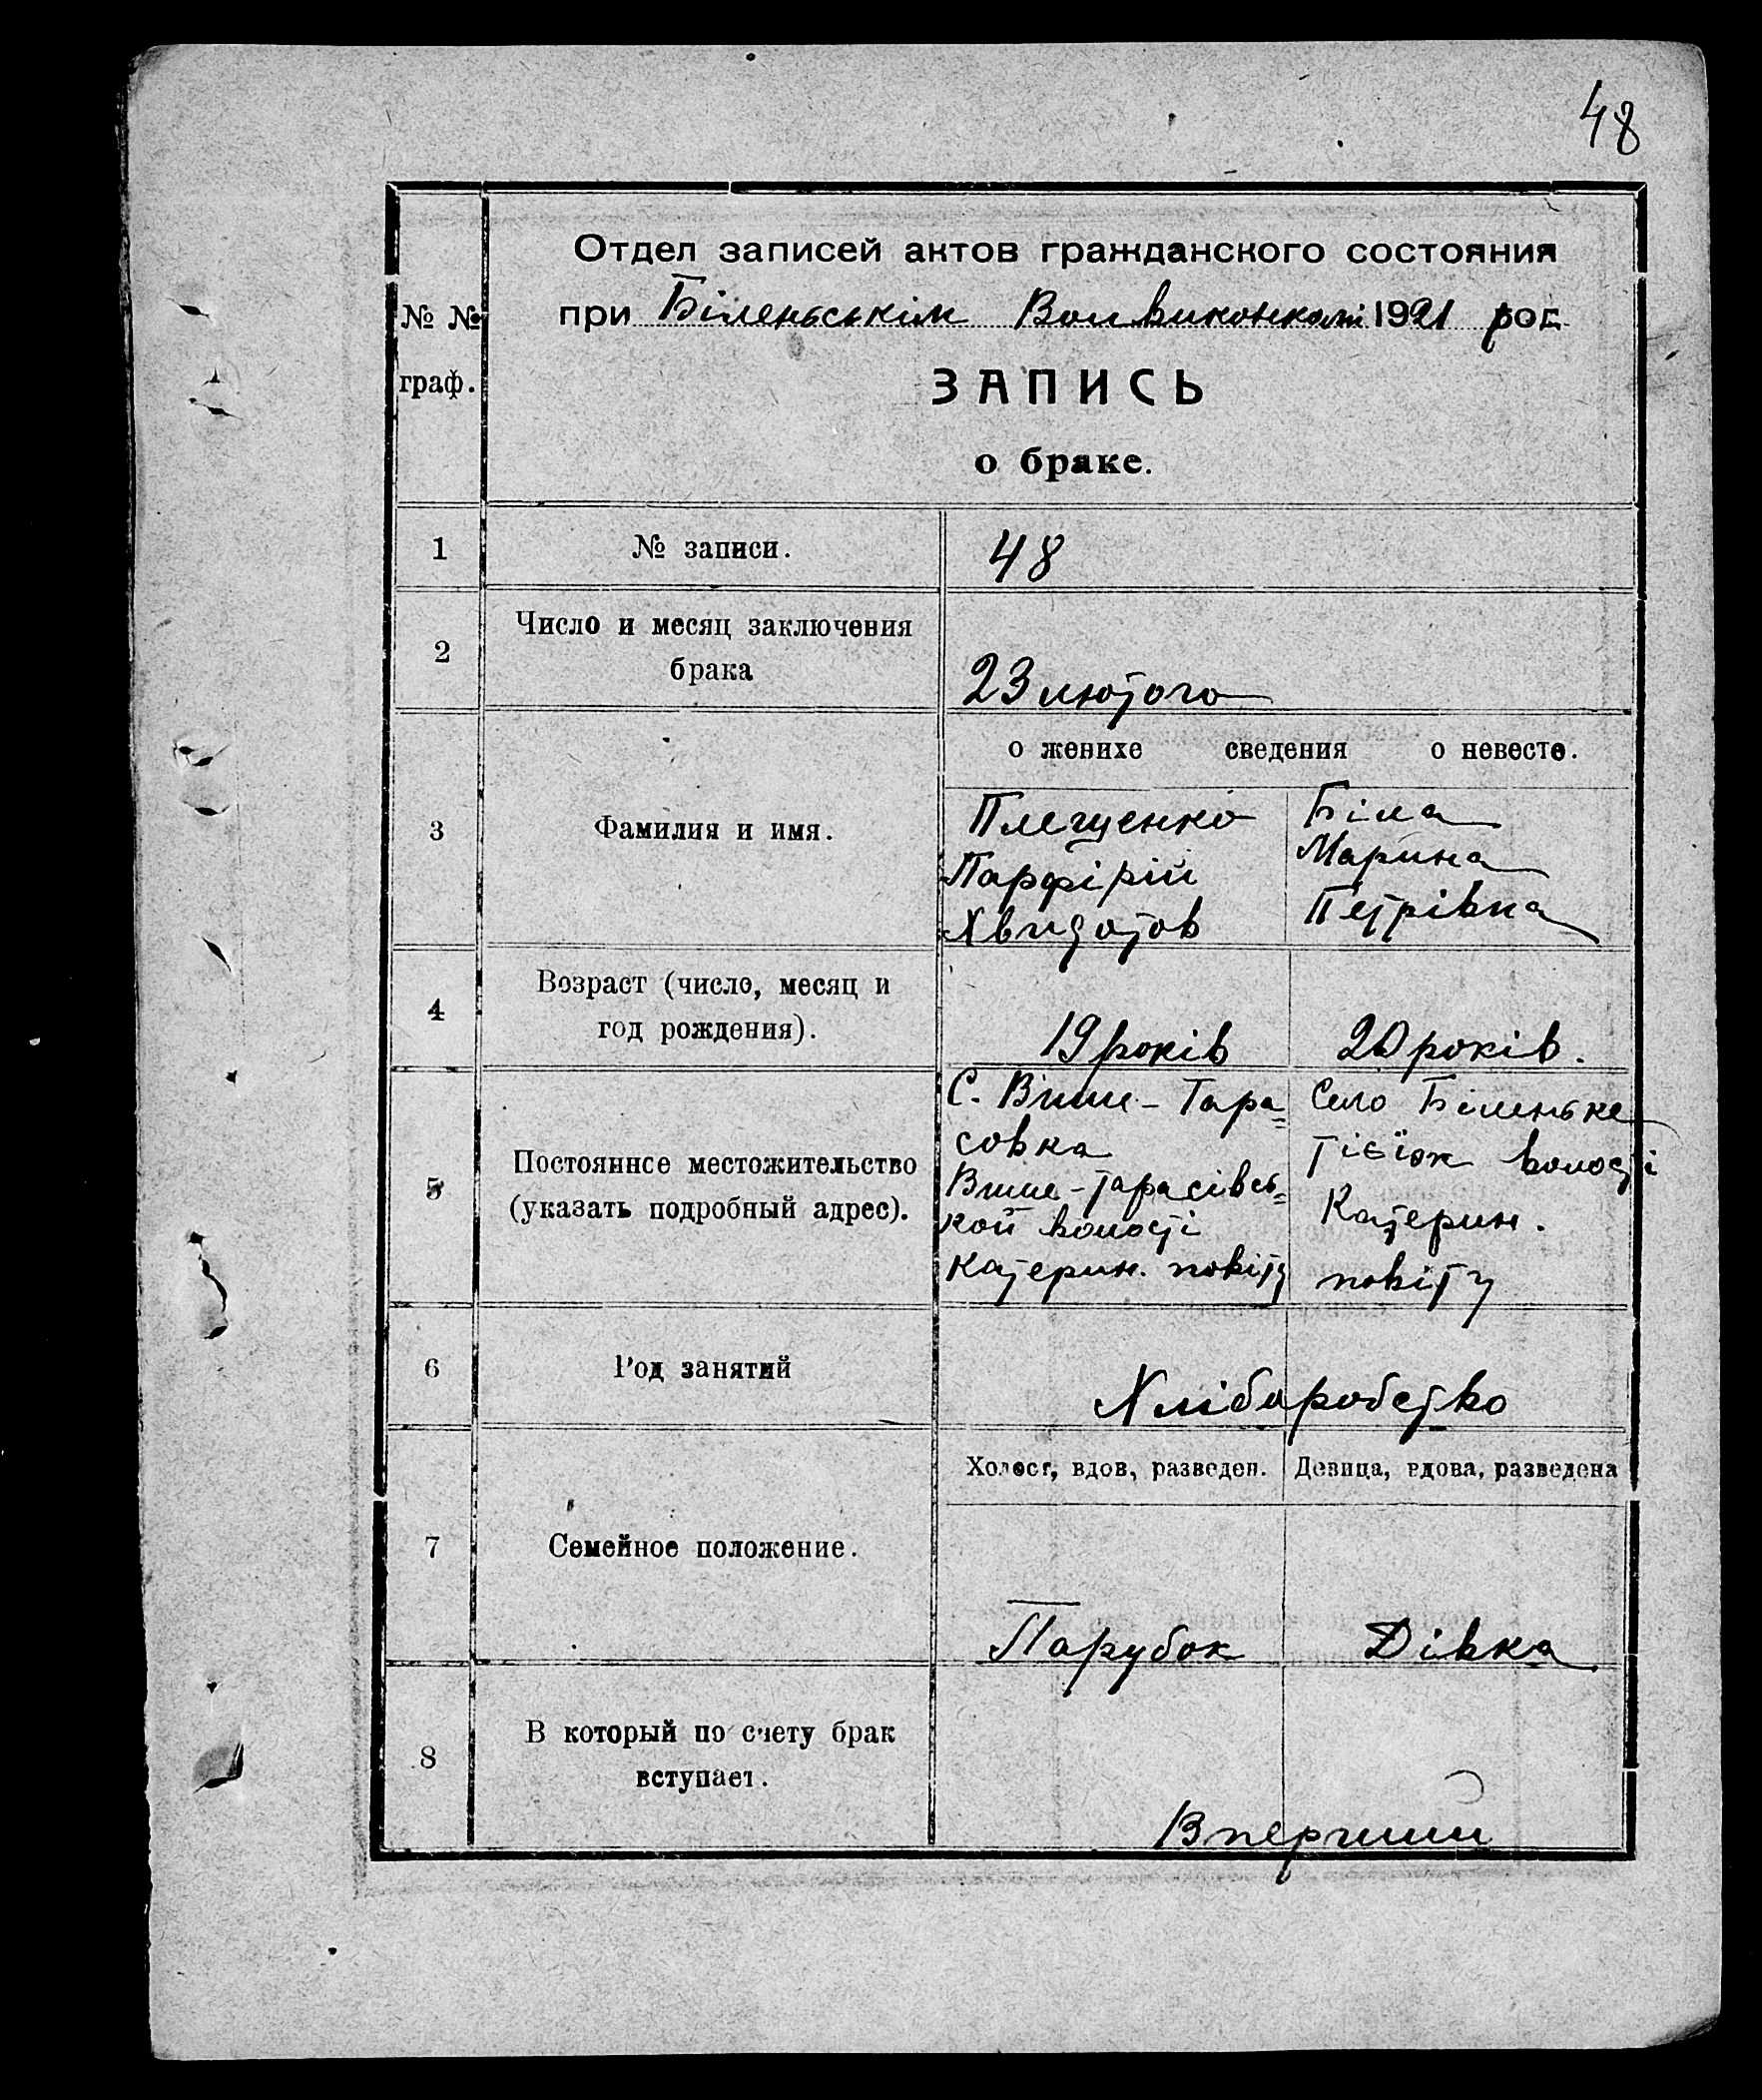 48
Отдел записей актов гражданского состояния
№ №
граф.
при Біленьськім Волвиконкомі 1921 рог.
ЗАПИСЬ
о браке.
1 № записи. 48
2 Число и месяц заключения
брака
23 лютого
о женихе сведения о невесте.
3 Фамилия и имя.
Плещенко
Парфірій
Хвидотов
Біла
Марина
Петрівна
4 Возраст (число, месяц и
год рождения).
19 років 20 років.
5 Постоянное местожительство
(указать подробный адрес).
С. Више-Тара=
совка
Више-Тарасівсь=
кой волості
Катерин. повіту
Село Біленьке
тієїж волості
Катерин.
повіту
6 Род занятий
Хліборобство
Холост, вдов, разведен. Девица, вдова, разведена
7 Семейное положение.
Парубок Дівка
8 В который по счету брак
вступает.
Вперший